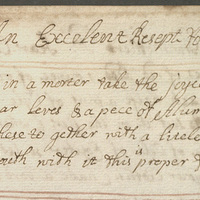 In Excelent Resept fo
in a morter take the joyce
ar leves & a pece of Allum
hese to gether with a litele
outh with it this is proper t